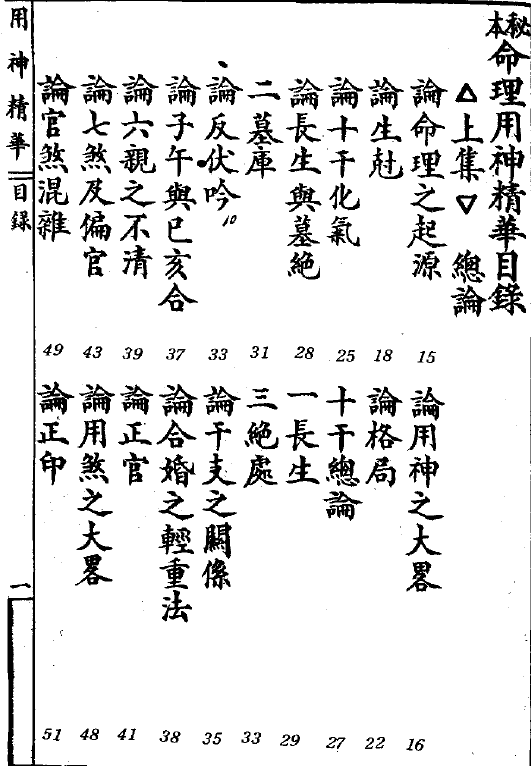 秘本命理用神精華目錄
△上集▽　總論
論命理之起源 15
論用神之大畧 16
論生尅 18
論格局 22
論十干化氣 25
十干總論 27
論長生與墓絕 28
一長生 29
二墓庫 31
三絕處 33
論反伏吟 33
論干支之關係 35
論子午與巳亥合 37
論合婚之輕重法 38
論六親之不清 39
論正官 41
論七煞及偏官 43
論用煞之大畧 48
論官煞混雜 49
論正印 51
用神精華
目錄
一